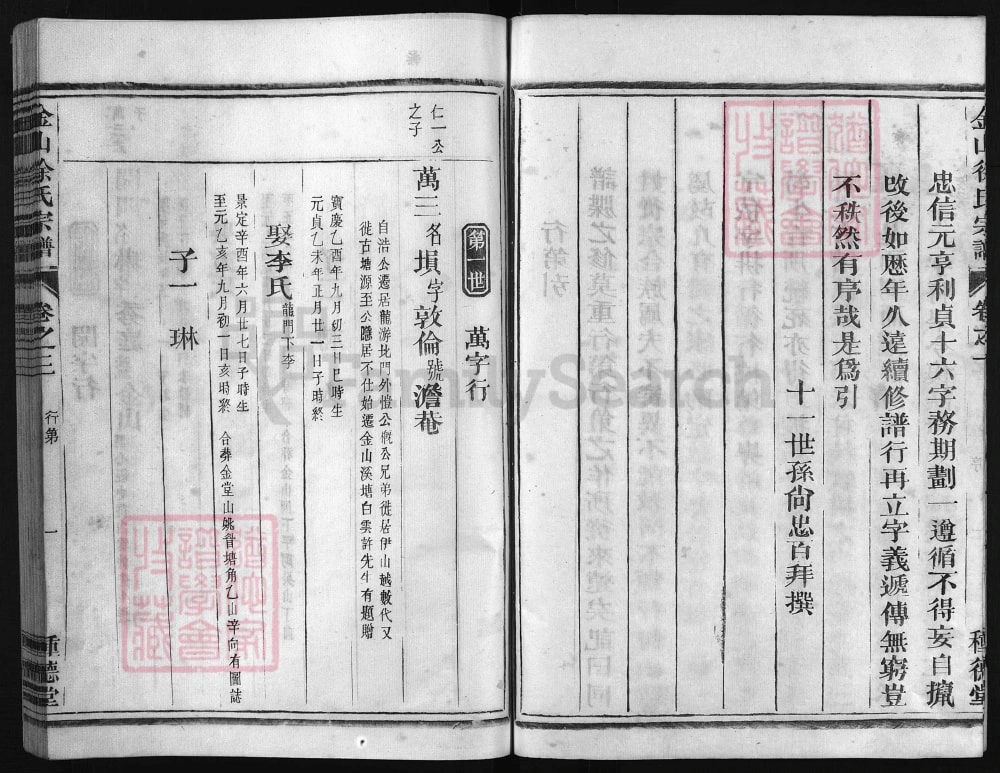 忠信元亨利貞十六字務期劃一遵循不得妄自攙
改後如歷年久遠續修譜行再立字義遞傳無窮豈
不秩然有序哉是爲引
十一世孫尙忠百拜撰
金山徐氏宗譜
卷之一
種德堂
第一世
萬字行
仁一公
之子
萬三名塤字敦倫號澹菴
自浩公遷居龍游北門外愷公概公兄弟徙居伊山越數代又
徙古塘源至公隱居不仕始遷金山溪塘白雲許先生有題贈
寳慶乙酉年九月初三日巳時生
元貞乙未年正月廿一日子時終
娶李氏龍門下李
景定辛酉年六月廿七日子時生
至元乙亥年九月初一日亥時終
合葬金堂山姚晋塘角乙山辛向有圖誌
子一
琳
金山徐氏宗譜
卷之三
行第
一
種德堂
FamilySearch